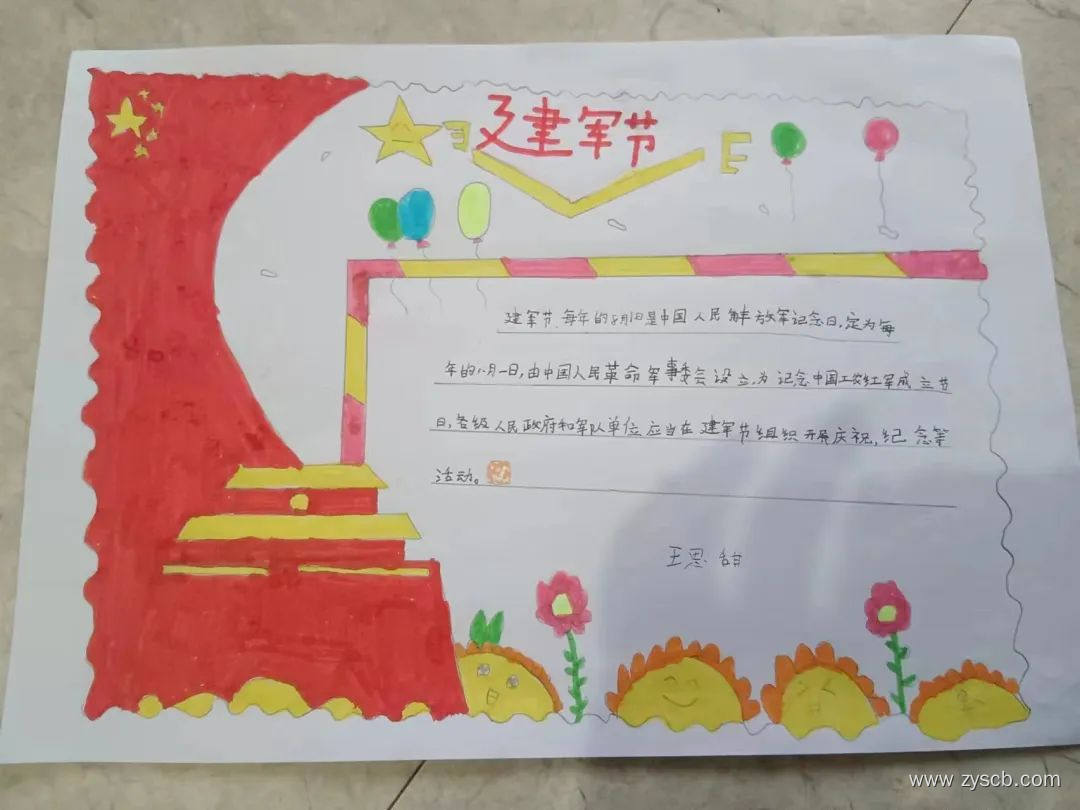 建军节
建军节，每年的8月1日是中国人民解放军记念日，定为每
年的八月一日，由中国人民革命军事委会设立，为记念中国工农红军成立节
日，各级人民政府和军队单位应当在建军节组织开展庆祝，纪念等
活动。
王思甜
www.zyscb.com